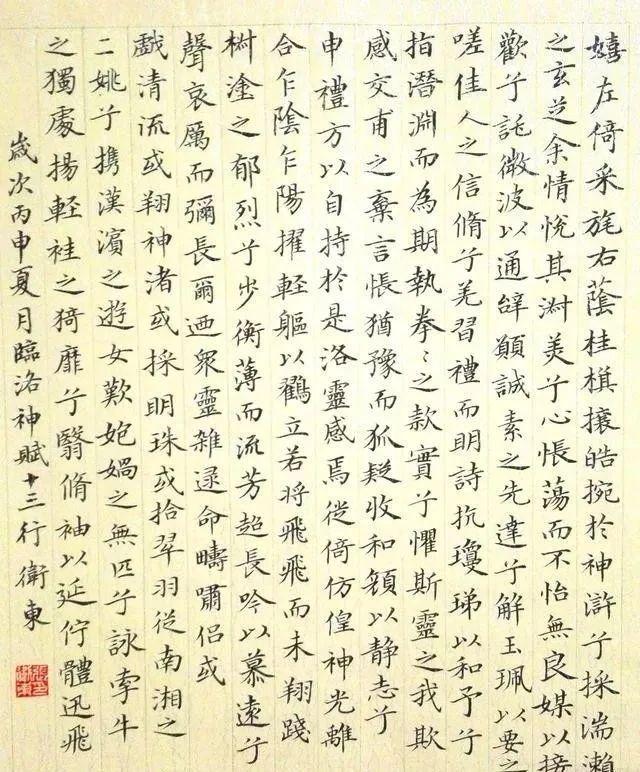 嬉左倚采旄右蔭桂棋攘皓捥於神滸兮採湍瀨
之玄芝余情悅其淑美兮心悵蕩而不怡無良媒以接
歡兮託微波以通辭願誠素之先達兮解玉珮以要之
嗟佳人之信脩兮羌習禮而明詩抗瓊珶以和予兮
指潛淵而為期執拳〻之款實兮懼斯靈之我欺
感交甫之棄言悵猶豫而狐疑收和顏以静志兮
申禮方以自持於是洛靈感焉從倚仿偟神光離
合乍陰乍陽擢軽軀以鸖立若将飛飛而未翔踐
椒塗之郁烈兮步衡薄而流芳超長吟以慕遠兮
聲哀厲而彌長爾迺眾靈雜遝命疇嘯侣或
戲清流或翔神渚或採明珠或拾翠羽從南湘之
二姚兮携漢濱之遊女歎匏媧之無匹兮詠牽牛
之獨處揚軽袿之猗靡兮翳脩袖以延佇體迅飛
歲次丙申夏月臨洛神賦十三行衛東